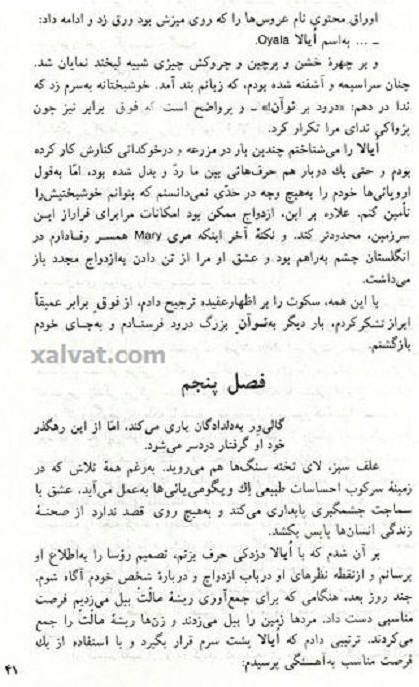 اوراق محتوی نام عروس‌ها را که روی میزش بود ورق زد و ادامه داد:
ـ ... به‌اسم اُیالا Oyala.
و بر چهرهٔ خشن و پرچین و چروکش چیزی شبیه لبخند نمایان شد.
چنان سراسیمه و آشفته شده بودم، که زبانم بند آمد. خوشبختانه به‌سرم زد که
ندا در دهم: «درود بر توآن!» ـ و پرواضح است که فوق برابر نیز چون
پژواکی ندای مرا تکرار کرد.
اُیالا را می‌شناختم چندین بار در مزرعه و درخوکدانی کنارش کار کرده
بودم و حتی یك دوبار هم حرف‌هائی بین ما ردّ و بدل شده بود، امّا به‌قول
اروپائی‌ها خودم را به‌هیچ وجه در حدّی نمی‌دانستم که بتوانم خوشبختیش‌را
تأمین کنم. علاوه بر این، ازدواج ممکن بود امکانات مرابرای فراراز این
سرزمین، محدودتر کند. و نکتهٔ آخر اینکه مری Mary همسر وفادارم در
انگلستان چشم به‌راهم بود و عشق او مرا از تن دادن به‌ازدواج مجدد باز
می‌داشت.
با این همه، سکوت را بر اظهارعقیده ترجیح دادم، از فوق برابر عمیقاً
ابراز تشکر کردم، بار دیگر به‌توآن بزرگ درود فرستادم و به‌جای خودم
بازگشتم.
xalvat.com
فصل پنجم
گالی‌ور به‌دلدادگان یاری می‌کند، امّا از این رهگذر
خود او گرفتار دردسر می‌شود.
علف سبز، لای تخته سنگ‌ها هم می‌روید. به‌رغم همهٔ تلاش که در
زمینهٔ سرکوب احساسات طبیعی اِك ویگومی‌یائی‌ها به‌عمل می‌آید، عشق با
سماجت چشمگیری پایداری می‌کند و به‌هیچ روی قصد ندارد از صحنهٔ
زندگی انسان‌ها پاپس بکشد.
بر آن شدم که با اُیالا دزدکی حرف بزنم، تصمیم رؤسا را به‌اطلاع او
برسانم و ازنقطه نظرهای او درباب ازدواج و دربارهٔ شخص خودم آگاه شوم.
چند روز بعد، هنگامی که برای جمع‌آوری ریشهٔ هالْتْ بیل می‌زدیم فرصت
مناسبی دست داد. مردها زمین را بیل می‌زدند و زن‌ها ریشهٔ هالْتْ را جمع
می‌کردند. ترتیبی دادم که اُیالا پشت سرم قرار بگیرد و با استفاده از یك
فرصت مناسب به‌آهستگی پرسیدم:
۴۱